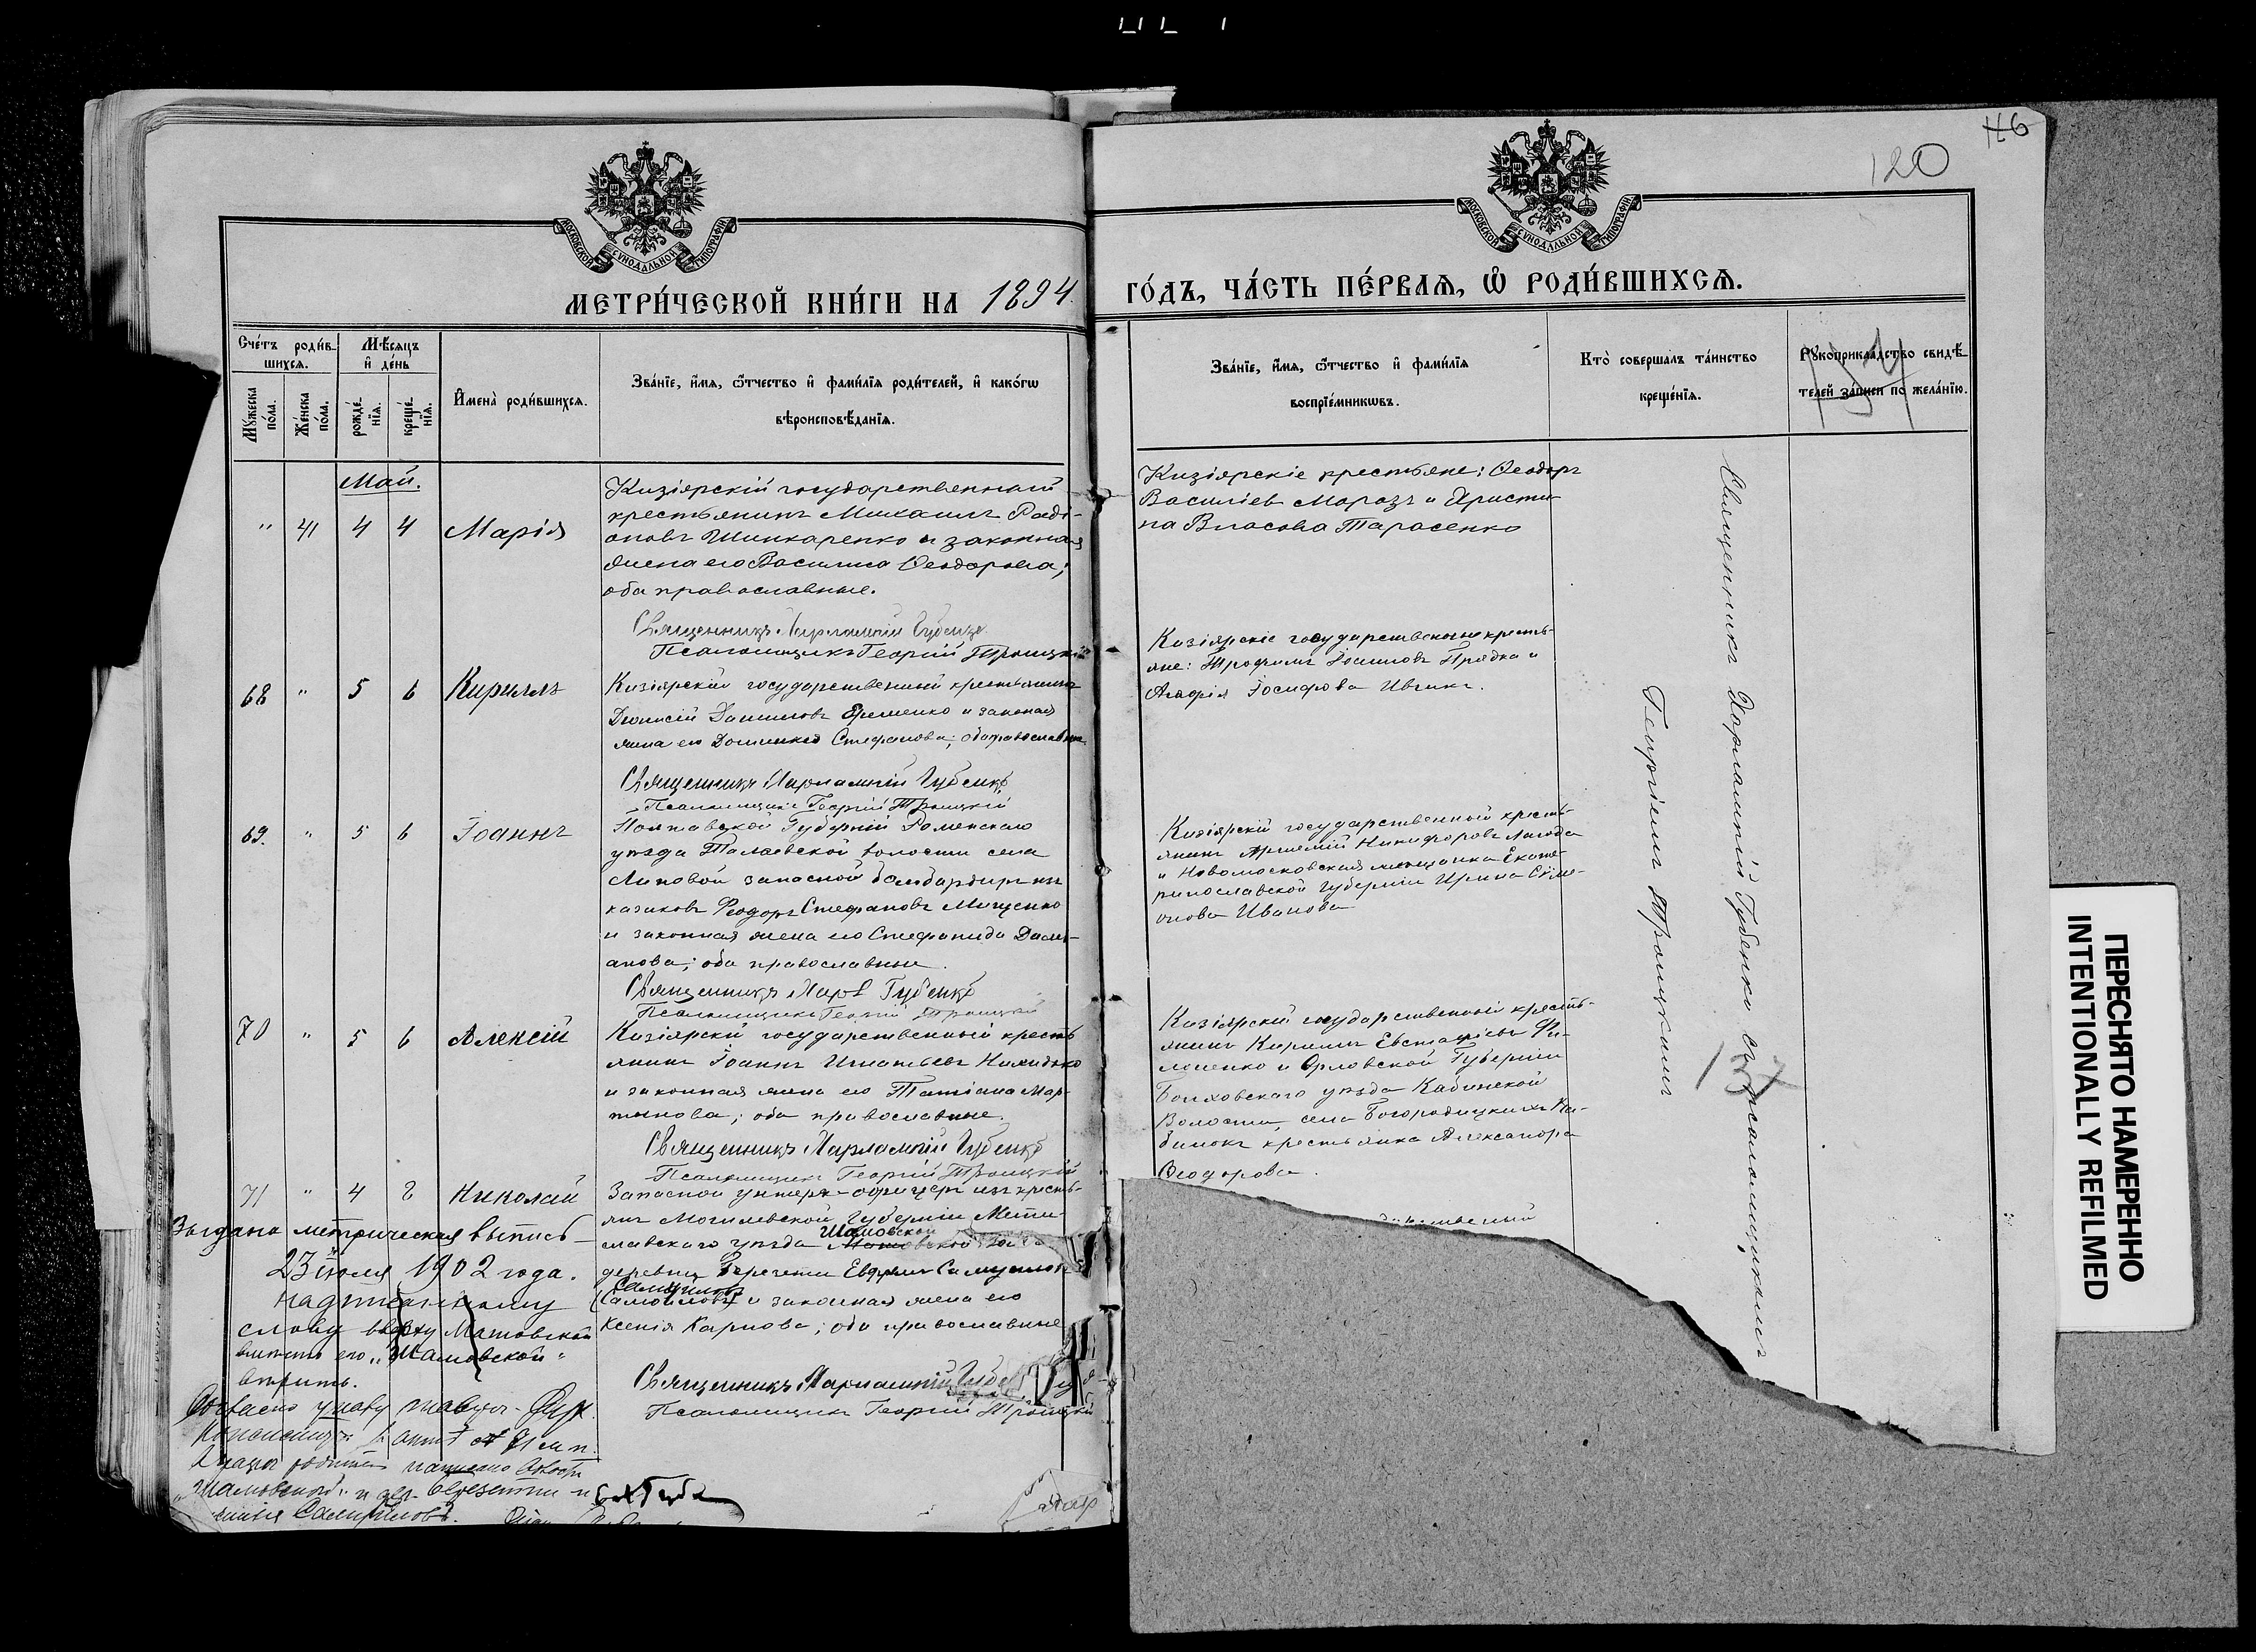 120
МОСКОВСКОЙ СУНОДАЛЬНОЙ ТИПОГРАФІИ
МОСКОВСКОЙ СУНОДАЛЬНОЙ ТИПОГРАФІИ
МЕТРИ́ЧЕСКОЙ КНИ́ГИ НА 1894
ГО́ДЪ, ЧА́СТЬ ПЕ́РВАѦ, Ѡ РОДИ́ВШИХСѦ.
Сче́тъ роди́вшихсѧ.
Мꙋ́жеска по́ла.
Же́нска по́ла.
Мѣ́сѧцъ и҆ де́нь
рожде́нїѧ.
креще́нїѧ.
И҆мена̀ роди́вшихсѧ.
Зва́нїе, и҆́мѧ, ѻ҆́тчество и҆ фами́лїѧ роди́телей, и҆ како́гѡ
вѣроисповѣ́данїѧ.
Зва́нїе, и҆́мѧ, ѻ҆́тчество и҆ фами́лїѧ
воспрїе́мникѡвъ.
Кто̀ соверша́лъ та́инство
креще́нїѧ.
Рꙋкоприкла́дство свидѣ́-
телей за́писи по жела́нїю.
Май.
" 41 4 4 Марія
Кизіярскій государственный
крестьянинъ Михаилъ Ради-
оновъ Шинкаренко и законная
жена его Василиса Ѳеодорова;
оба православные.
Священникъ Харлампій Губенко
Псаломщикъ Георгій Троицкій
Кизіярскіе крестьяне: Ѳеодоръ
Василіев Морозъ и Христи-
на Власова Тарасенко
68 " 5 6 Кириллъ
Кизіярскій государственный крестьянинъ
Діонисій Даниловъ Еременко и законная
жена его Домникія Стефанова; оба православные
Священникъ Харлампій Губенко
Псаломщикъ Георгій Троицкій
Кизіярскіе государственные кресть-
яне: Трофимъ Іоанновъ Прядка и
Агафія Іосифова Ивчинъ.
69. " 5 6 Іоаннъ
Полтавской Губерніи Роменскаго
уѣзда Талаевской волости села
Липовой запасной бомбардиръ изъ
казаковъ Ѳеодоръ Стефановъ Мищенко
и законная жена его Стефанида Даміа-
нова; оба православные.
Священникъ Харл Губенко
Псаломщикъ Георгій Троицкій
Кизіярскій государственный кресть-
янинъ Артемій Никифоровъ Лагода
и Новомосковская мещанка Екате-
ринославской Губерніи Ирина Симе-
онова Иванова
70 " 5 6 Алексій
Кизіярскій государственный кресть-
янинъ Іоаннъ Игнатьевъ
и законная жена его Татіана Мар-
тинова; оба православные.
Священникъ Харлампій Губенко
Псаломщикъ Георгій Троицкій
Кизіярскій государственный кресть-
янинъ Кириллъ Евстафіевъ Фи-
лоненко и Орловской Губерніи
Болховскаго уѣзда
Волости, села Богородицкихъ
крестьянка Александра
Ѳеодорова.
71 " 4 8 Николай
Запасной унтеръ-офицеръ изъ кресть-
янъ Могилевской Губерніи Мсти-
славскаго уѣзда Шамовской
деревни Евфимъ Самуилов
Самуиловъ и законная жена его
Ксенія Карпова; оба православные
Священникъ Харлампій Губенко
Псаломщикъ Георгій Троицкій
Выдана метрическая выпись
23 іюля 1902 года.
Надписанному
слову вверху Матовской
вмѣсто его "Шамовской"
вѣрить.
Священникъ Харлампій Губенко съ псаломщикомъ
Георгіемъ Троицкимъ
137
ПЕРЕСНЯТО НАМЕРЕННО
INTENTIONALLY REFILMED